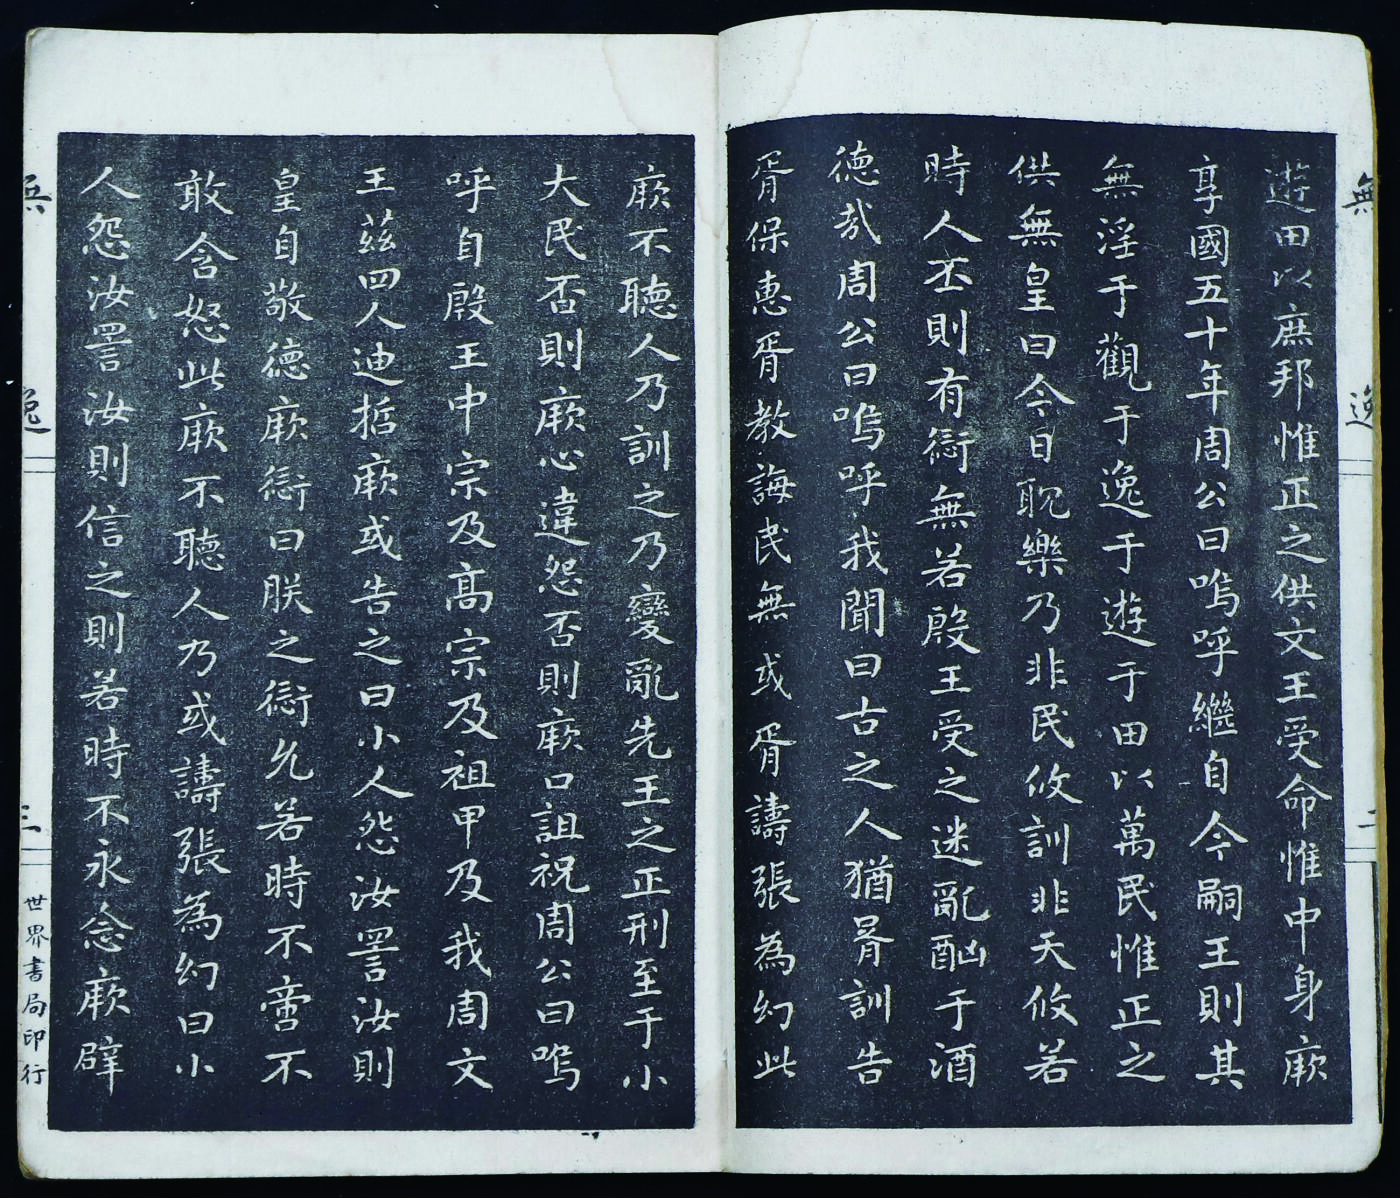 無逸 二
遊田以庶邦惟正之供文王受命惟中身厥
享國五十年周公曰嗚呼繼自今嗣王則其
無淫于觀于逸于遊于田以萬民惟正之
供無皇曰今日耽樂乃非民攸訓非天攸若
時人丕則有愆無若殷王受之迷亂酗于酒
德哉周公曰嗚呼我聞曰古之人猶胥訓告
胥保惠胥教誨民無或胥譸張為幻此
厥不聽人乃訓之乃變亂先王之正刑至于小
大民否則厥心違怨否則厥口詛祝周公曰嗚
呼自殷王中宗及高宗及祖甲及我周文
王茲四人迪哲厥或告之曰小人怨汝詈汝則
皇自敬德厥愆曰朕之愆允若時不啻不
敢含怒此厥不聽人乃或譸張為幻曰小
人怨汝詈汝則信之則若時不永念厥辟
無逸 三
世界書局印行